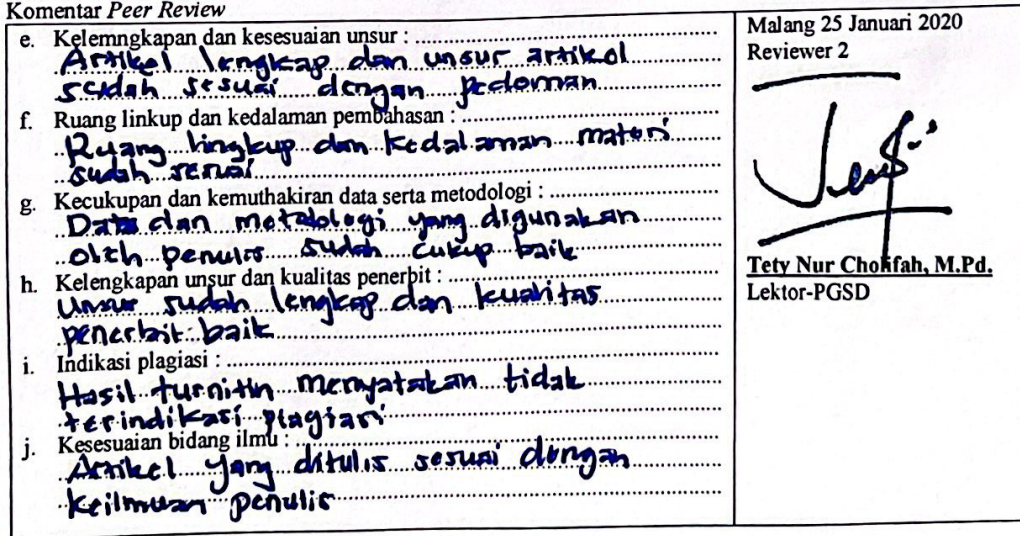 Komentar Peer Review
e. Kelemngkapan dan kesesuaian unsur :
Artikel lengkap dan unsur artikel
sudah sesuai dengan pedoman
f. Ruang linkup dan kedalaman pembahasan :
Ruang lingkup dan kedalaman materi
sudah sesuai
g. Kecukupan dan kemuthakiran data serta metodologi :
Data dan metodologi yang digunakan
oleh penulis sudah cukup baik
h. Kelengkapan unsur dan kualitas penerbit :
Unsur sudah lengkap dan kualitas
penerbit baik
i. Indikasi plagiasi :
Hasil turnitin menyatakan tidak
terindikasi plagiasi
j. Kesesuaian bidang ilmu :
Artikel yang ditulis sesuai dengan
keilmuan penulis
Malang 25 Januari 2020
Reviewer 2
Tety Nur Cholifah, M.Pd.
Lektor-PGSD